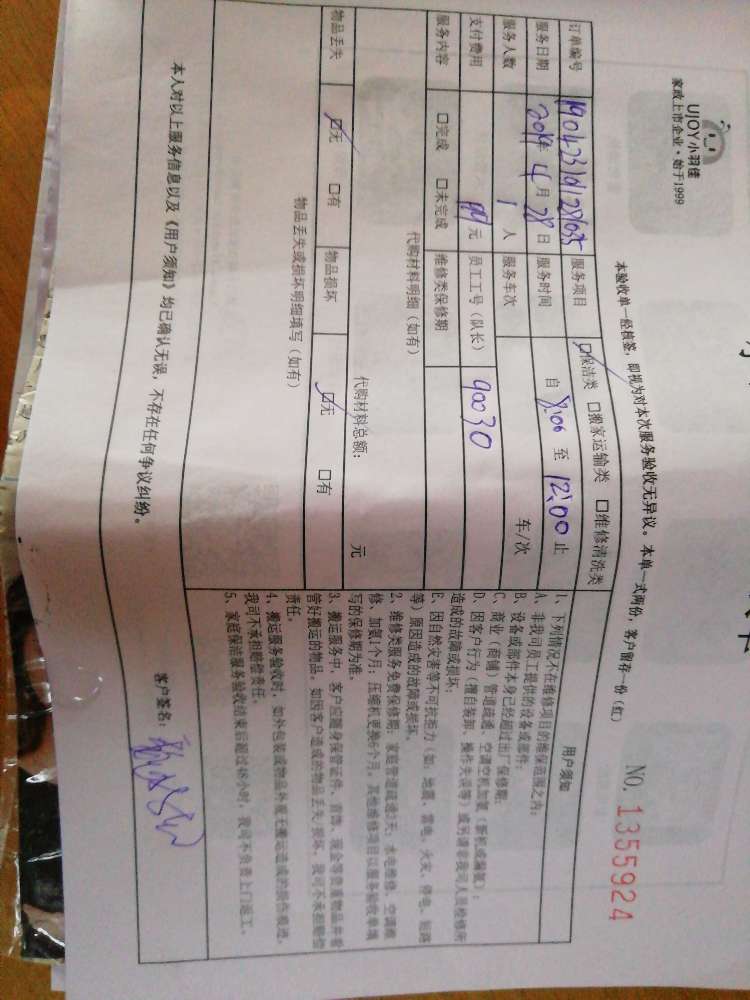 UJOY小羽佳
家政上市企业·始于1999
本验收单一经核签，即视为对本次服务验收无异议。本单一式两份，客户留存一份（红）
NO. 1355924
订单编号
服务项目 ☑保洁类 □搬家运输类 □维修清洗类
服务日期 2019年4月28日 服务时间 自 8:00 至 12:00 止
服务人数 1 人 服务车次 车/次
支付费用 元 员工工号（队长） 90030
服务内容 □完成 □未完成 维修类保修期
代购材料明细（如有）
代购材料总额： 元
物品丢失 ☑无 □有 物品损坏 ☑无 □有
物品丢失或损坏明细填写（如有）
用户须知
1、下列情况不在维修项目的维保范围之内：
A、非我司员工提供的设备或部件；
B、设备或部件本身已经超过出厂保修期；
C、商业（商铺）管道疏通、空调空机加氨（新机或漏氨）；
D、因客户行为（擅自装卸、操作失误等）或另请非我司人员检修所
造成的故障或损坏；
E、因自然灾害等不可抗拒力（如：地震、雷电、火灾、停电、短路
等）原因造成的故障或损坏。
2、维修类服务免费保修期：家庭管道疏通3天；水电维修、空调维
修、加氨1个月；压缩机更换6个月。其他维修项目以服务验收单填
写的保修期为准。
3、搬运服务中，客户应随身保管证件、首饰、现金等贵重物品并看
管好搬运的物品。如因客户造成的物品丢失/损坏，我司不承担赔偿
责任。
4、搬运服务验收时，如外包装或物品外观无搬运造成的损伤痕迹，
我司不承担赔偿责任。
5、家庭保洁服务验收结束后超过48小时，我司不负责上门返工。
本人对以上服务信息以及《用户须知》均已确认无误，不存在任何争议纠纷。
客户签名：